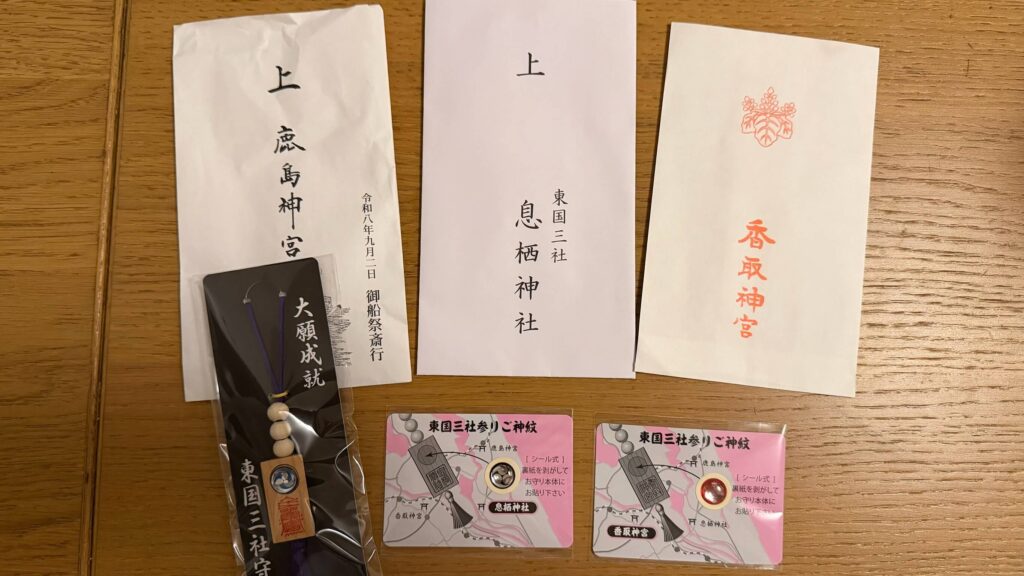 上
鹿島神宮
令和八年九月二日 御船祭斎行
上
東国三社
息栖神社
香取神宮
大願成就
東国三社守
東国三社参りご神紋
鹿島神宮
[シール式]
裏紙を剥がして
お守り本体に
お貼り下さい
香取神宮
息栖神社
東国三社参りご神紋
鹿島神宮
[シール式]
裏紙を剥がして
お守り本体に
お貼り下さい
息栖神社
香取神宮